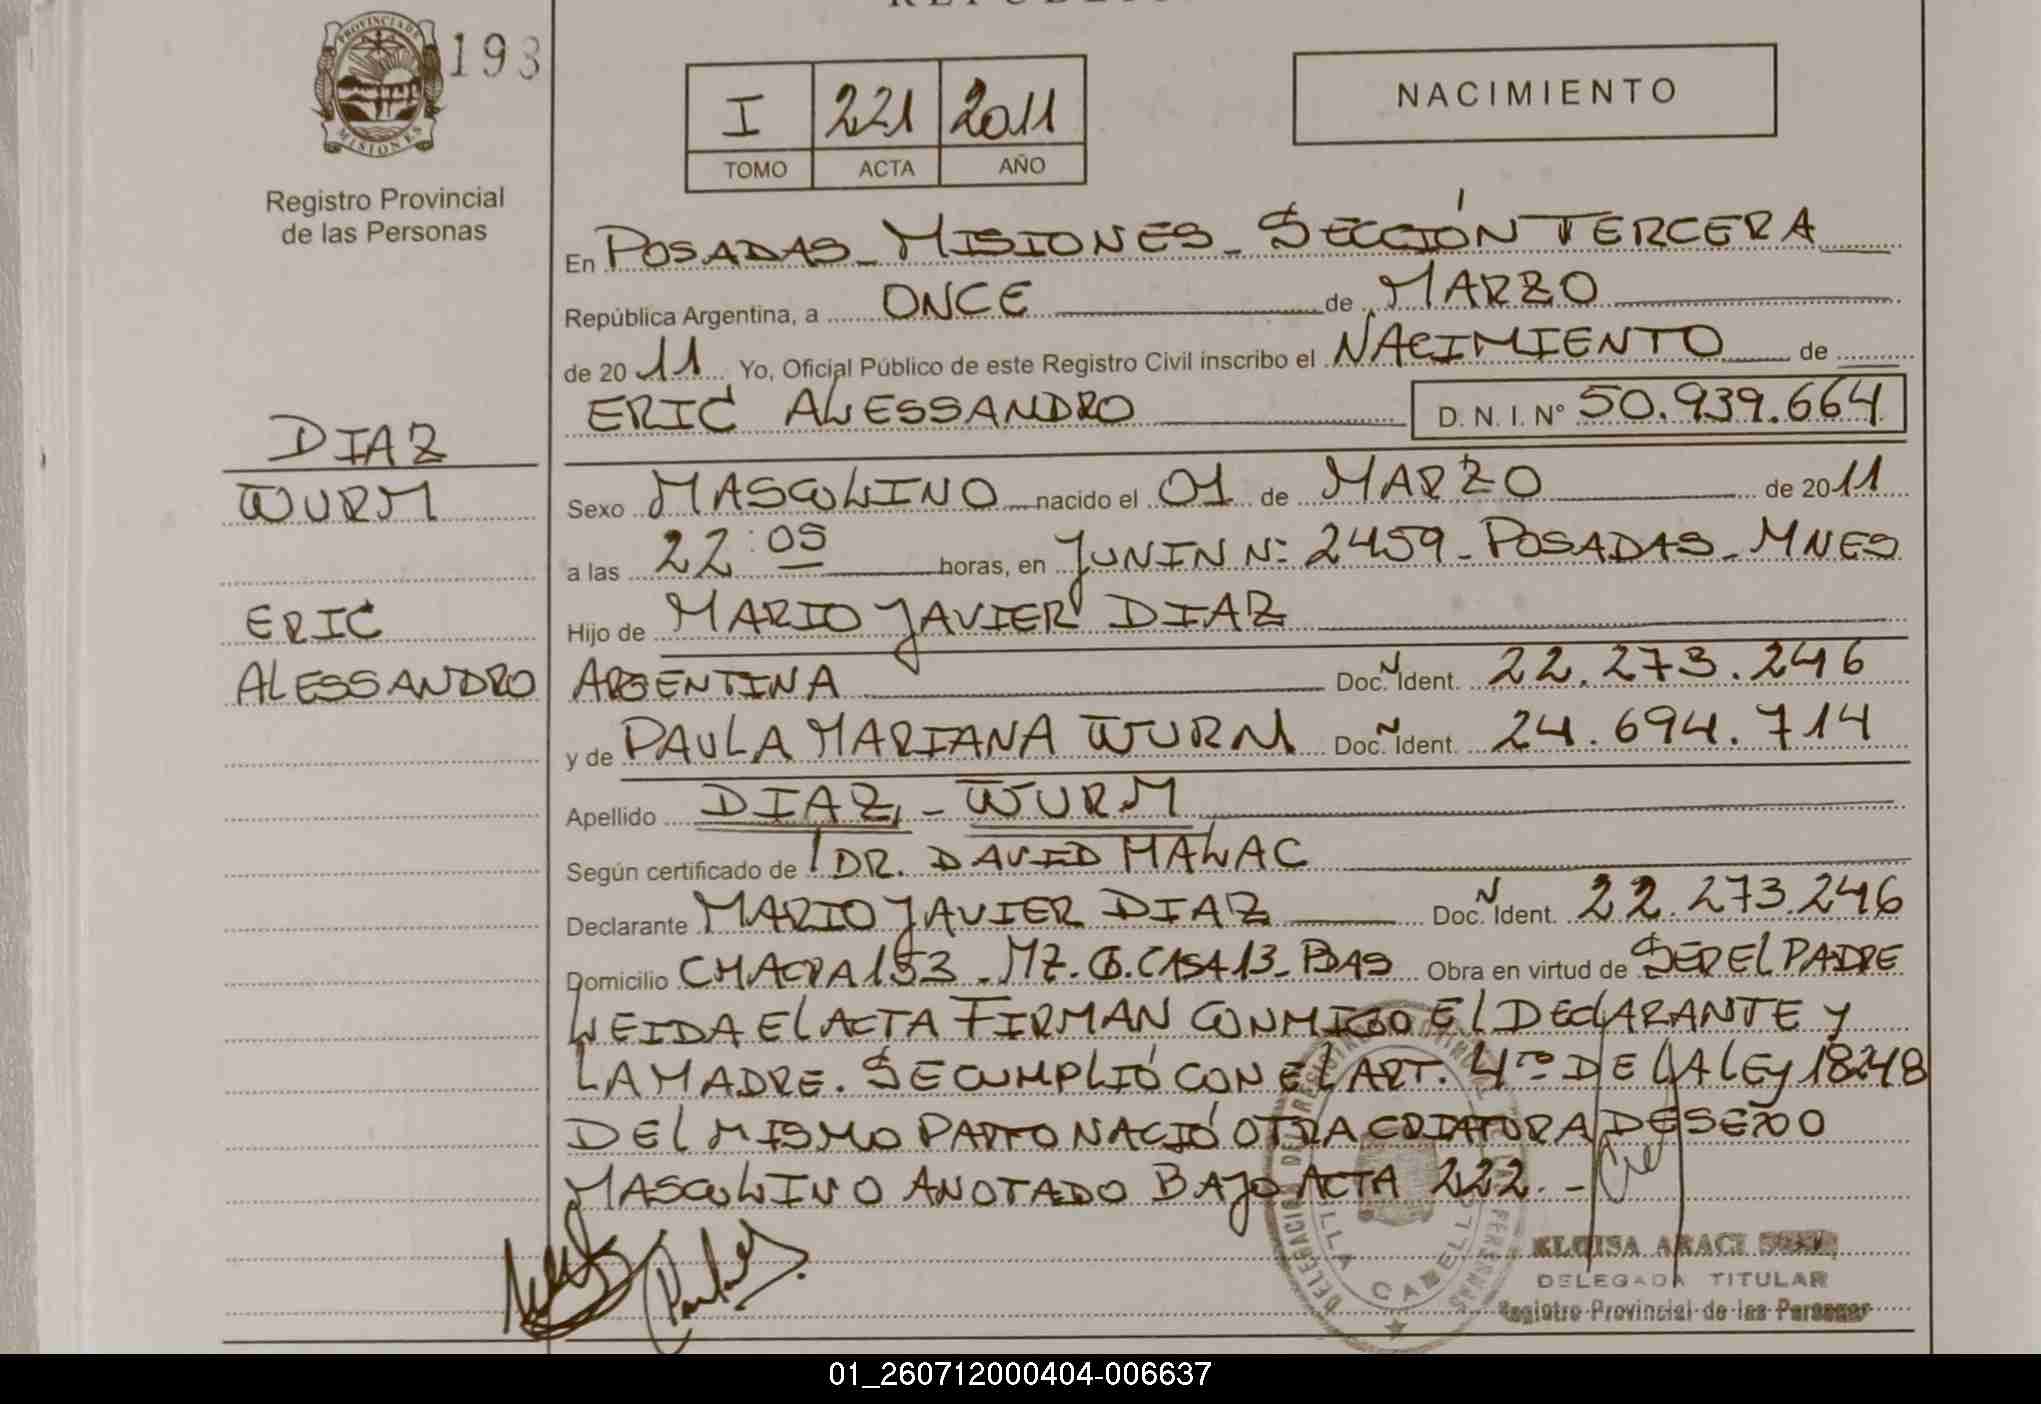 PROVINCIA DE
MISIONES
193
Registro Provincial
de las Personas
I 221 2011
TOMO ACTA AÑO
NACIMIENTO
En POSADAS - MISIONES - SECCIÓN TERCERA
República Argentina, a ONCE de MARZO
de 2011 Yo, Oficial Público de este Registro Civil inscribo el NACIMIENTO de
ERIC ALESSANDRO D. N. I. N° 50.939.664
DIAZ
WURM
ERIC
ALESSANDRO
Sexo MASCULINO nacido el 01 de MARZO de 2011
a las 22:05 horas, en JUNIN Nº 2459 - POSADAS - MNES
Hijo de MARIO JAVIER DIAZ
ARGENTINA Doc. N Ident. 22.273.246
y de PAULA MARIANA WURM Doc. N Ident. 24.694.714
Apellido DIAZ - WURM
Según certificado de DR. DAVID MALAC
Declarante MARIO JAVIER DIAZ Doc. N Ident. 22.273.246
Domicilio CHACRA 153 - MZ. 6. CASA 13 - PDAS Obra en virtud de SER EL PADRE
LEIDA EL ACTA FIRMAN CONMIGO EL DECLARANTE Y
LA MADRE. SE CUMPLIÓ CON EL ART. 4to DE LA LEY 18248
DEL MISMO PARTO NACIÓ OTRA CRIATURA DE SEXO
MASCULINO ANOTADO BAJO ACTA 222. -
VILLA CABELLO
DELEGADA TITULAR
Registro Provincial de las Personas
01_260712000404-006637